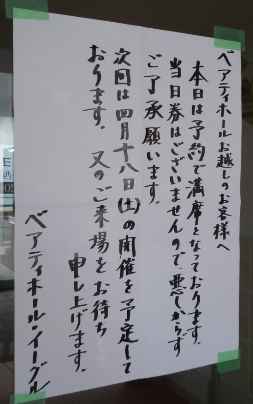 ベアティホールお越しのお客様へ
本日は予約で満席となっております。
当日券はございませんので、悪しからず
ご了承願います。
次回は四月十八日(土)の開催を予定して
おります。又のご来場をお待ち
申し上げます。
ベアティホール・イーグル